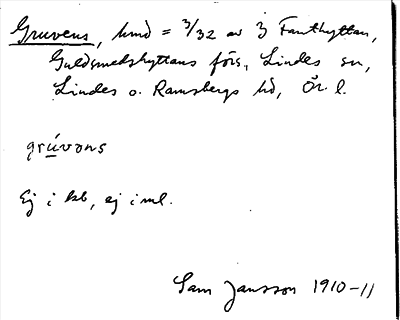 Gruvens, hmd = 3/32 av 3 Fanthyttan,
Guldsmedshyttans förs., Lindes sn,
Lindes o. Ramsbergs hd, Ör. l.
grúvens
Ej i kb, ej i ml.
Sam Jansson 1910-11